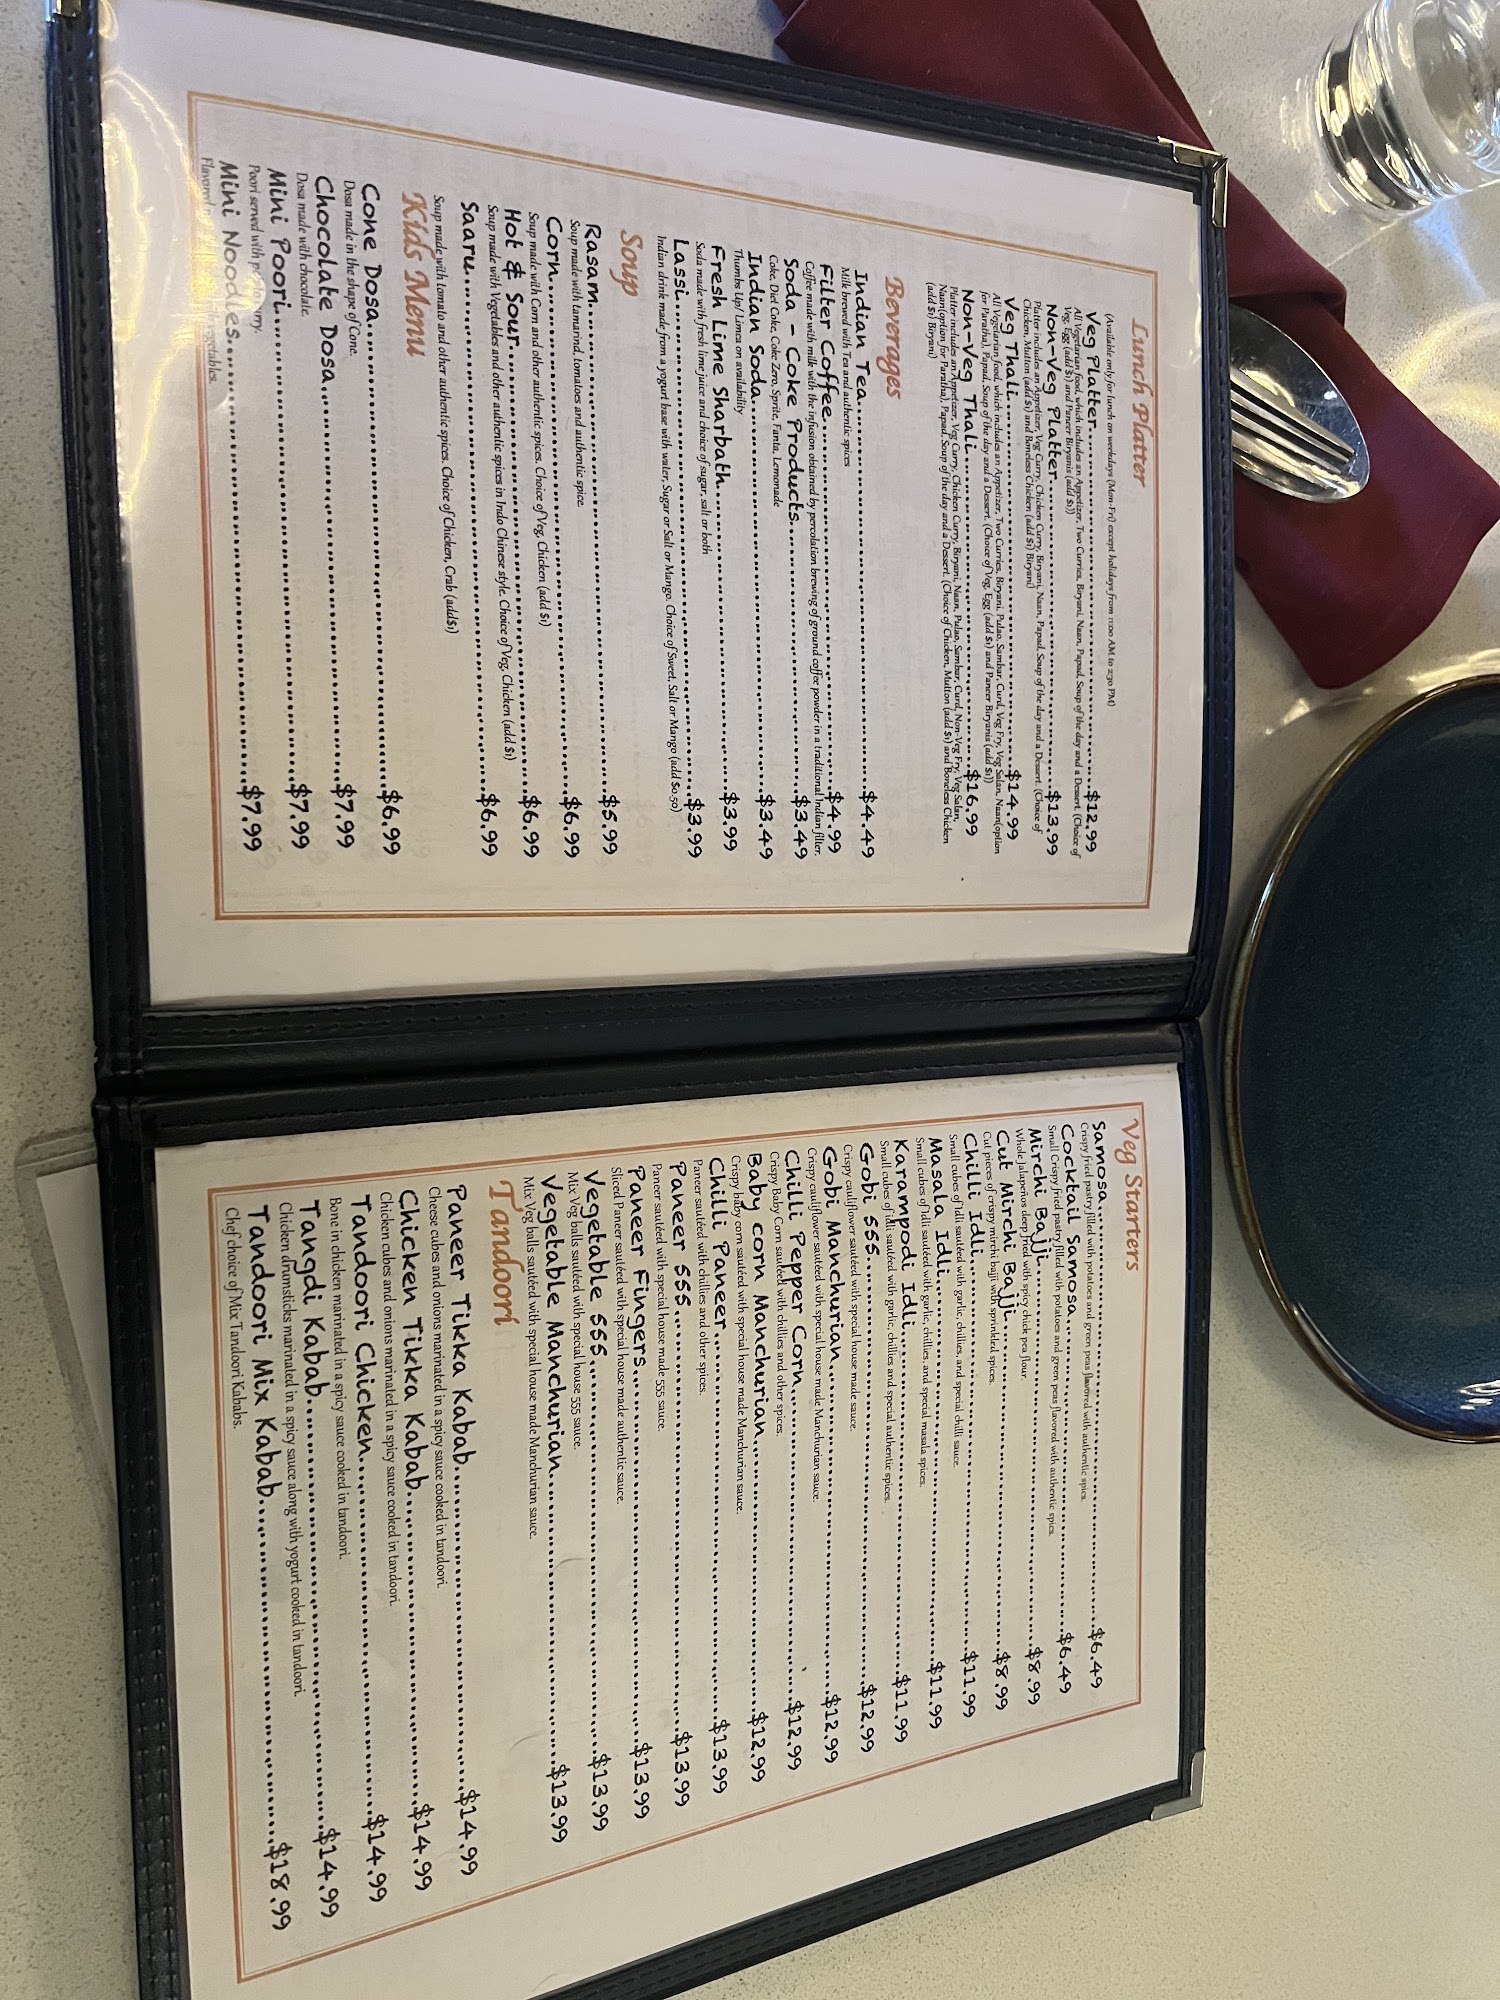 Lunch Platter
(Available only for lunch on weekdays (Mon-Fri) except holidays from 11:00 AM to 2:30 PM)
Veg Platter.....$12.99
All Vegetarian food, which includes an Appetizer, Two Curries, Biryani, Naan, Papad, Soup of the day and a Dessert. (Choice of
Veg, Egg (add $1) and Paneer Biryanis (add $1))
Non-Veg Platter.....$13.99
Platter includes an Appetizer, Veg Curry, Chicken Curry, Biryani, Naan, Papad, Soup of the day and a Dessert. (Choice of
Chicken, Mutton (add $1) and Boneless Chicken (add $1) Biryani)
Veg Thali.....$14.99
All Vegetarian food, which includes an Appetizer, Two Curries, Biryani, Pulao, Sambar, Curd, Veg Fry, Veg Salan, Naan(option
for Paratha), Papad, Soup of the day and a Dessert. (Choice of Veg, Egg (add $1) and Paneer Biryanis (add $1))
Non-Veg Thali.....$16.99
Platter includes an Appetizer, Veg Curry, Chicken Curry, Biryani, Naan, Pulao, Sambar, Curd, Non-Veg Fry, Veg Salan,
Naan(option for Paratha), Papad, Soup of the day and a Dessert. (Choice of Chicken, Mutton (add $1) and Boneless Chicken
(add $1) Biryani)
Beverages
Indian Tea.....$4.49
Milk brewed with Tea and authentic spices
Filter Coffee.....$4.99
Coffee made with milk with the infusion obtained by percolation brewing of ground coffee powder in a traditional Indian filter.
Soda - Coke Products.....$3.49
Coke, Diet Coke, Coke Zero, Sprite, Fanta, Lemonade
Indian Soda.....$3.49
Thumbs Up/ Limca on availability
Fresh Lime Sharbath.....$3.99
Soda made with fresh lime juice and choice of sugar, salt or both
Lassi.....$3.99
Indian drink made from a yogurt base with water, Sugar or Salt or Mango. Choice of Sweet, Salt or Mango (add $0.50)
Soup
Rasam.....$5.99
Soup made with tamarind, tomatoes and authentic spice.
Corn.....$6.99
Soup made with Corn and other authentic spices. Choice of Veg, Chicken (add $1)
Hot & Sour.....$6.99
Soup made with Vegetables and other authentic spices in Indo Chinese style. Choice of Veg, Chicken (add $1)
Saaru.....$6.99
Soup made with tomato and other authentic spices. Choice of Chicken, Crab (add$1)
Kids Menu
Cone Dosa.....$6.99
Dosa made in the shape of Cone.
Chocolate Dosa.....$7.99
Dosa made with chocolate.
Mini Poori.....$7.99
Poori served with potato curry.
Mini Noodles.....$7.99
Flavored vegetables.
Veg Starters
Samosa.....$6.49
Crispy fried pastry filled with potatoes and green peas flavored with authentic spics.
Cocktail Samosa.....$6.49
Small Crispy fried pastry filled with potatoes and green peas flavorred with authentic spics.
Mirchi Bajji.....$8.99
Whole Jalapeños deep fried with spicy chick pea flour.
Cut Mirchi Bajji.....$8.99
Cut pieces of crispy mirchi bajji with sprinkled spices.
Chilli Idli.....$11.99
Small cubes of Idli sautéed with garlic, chillies, and special chilli sauce.
Masala Idli.....$11.99
Small cubes of Idli sautéed with garlic, chillies, and special masala spices.
Karampodi Idli.....$11.99
Small cubes of idli sautéed with garlic, chillies and special authentic spices.
Gobi 555.....$12.99
Crispy cauliflower sautéed with special house made sauce.
Gobi Manchurian.....$12.99
Crispy cauliflower sautéed with special house made Manchurian sauce.
Chilli Pepper Corn.....$12.99
Crispy Baby Corn sautéed with chillies and other spices.
Baby corn Manchurian.....$12.99
Crispy baby corn sautéed with special house made Manchurian sauce.
Chilli Paneer.....$13.99
Paneer sautéed with chillies and other spices.
Paneer 555.....$13.99
Paneer sautéed with special house made 555 sauce.
Paneer Fingers.....$13.99
Sliced Paneer sautéed with special house made authentic sauce.
Vegetable 555.....$13.99
Mix Veg balls sautéed with special house 555 sauce.
Vegetable Manchurian.....$13.99
Mix Veg balls sautéed with special house made Manchurian sauce.
Tandoori
Paneer Tikka Kabab.....$14.99
Cheese cubes and onions marinated in a spicy sauce cooked in tandoori.
Chicken Tikka Kabab.....$14.99
Chicken cubes and onions marinated in a spicy sauce cooked in tandoori.
Tandoori Chicken.....$14.99
Bone in chicken marinated in a spicy sauce cooked in tandoori.
Tangdi Kabab.....$14.99
Chicken drumsticks marinated in a spicy sauce along with yogurt cooked in tandoori.
Tandoori Mix Kabab.....$18.99
Chef choice of Mix Tandoori Kababs.